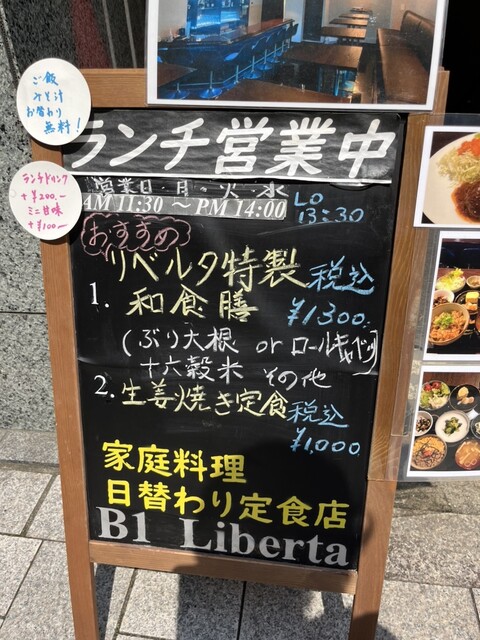 ご飯
みそ汁
お替わり
無料!
ランチ営業中
ランチドリンク
+¥200.-
ミニ甘味
+¥100-
営業日 月・火・水
AM 11:30 ～ PM 14:00
LO
13:30
おすすめ
リベルタ特製 税込
1. 和食膳 ¥1300.
(ぶり大根 or ロールキャベツ)
十六穀米 その他
2. 生姜焼き定食 税込
¥1,000.
家庭料理
日替わり定食店
B1 Liberta